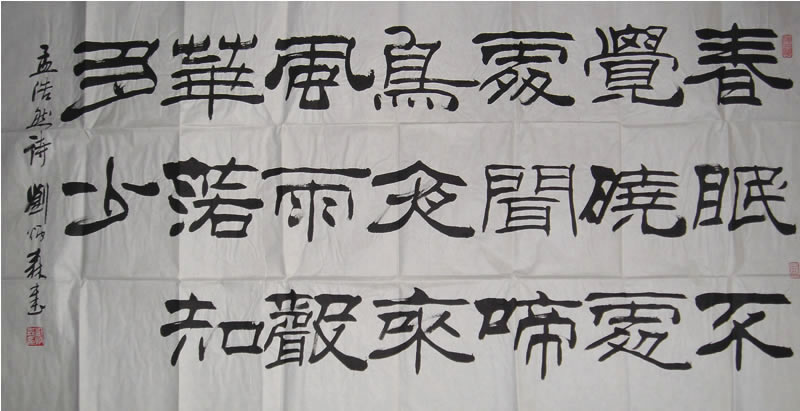 春眠不
覺曉處
處聞啼
鳥夜來
風雨聲
華落知
多少
孟浩然詩 劉炳森書